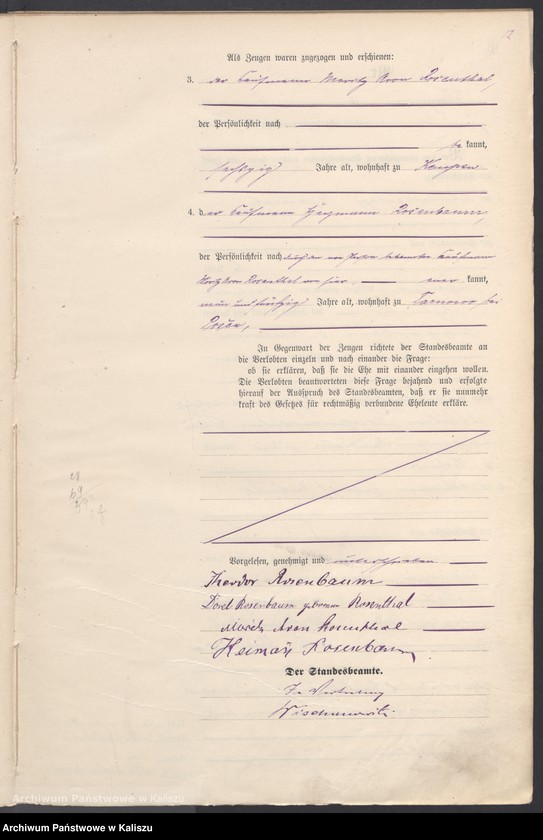 12
Als Zeugen waren zugezogen und erschienen:
3. der Kaufmann Moritz Aron Rosenthal,
der Persönlichkeit nach
be kannt,
sechszig Jahre alt, wohnhaft zu Kempen
4. der Kaufmann Heymann Rosenbaum
der Persönlichkeit nach durch den von Person bekannten Kaufmann
Moritz Aron Rosenthal von hier, aner kannt,
neun und fünfzig Jahre alt, wohnhaft zu Tarnowo bei
Posen,
In Gegenwart der Zeugen richtete der Standesbeamte an
die Verlobten einzeln und nach einander die Frage:
ob sie erklären, daß sie die Ehe mit einander eingehen wollen.
Die Verlobten beantworteten diese Frage bejahend und erfolgte
hierauf der Ausspruch des Standesbeamten, daß er sie nunmehr
kraft des Gesetzes für rechtmäßig verbundene Eheleute erkläre.
Vorgelesen, genehmigt und unterschrieben
Theodor Rosenbaum
Dorel Rosenbaum geborene Rosenthal
Moritz Aron Rosenthal
Heimann Rosenbaum
Der Standesbeamte.
In Vertretung
Archiwum Państwowe w Kaliszu
Archiwum Państwowe w Kaliszu